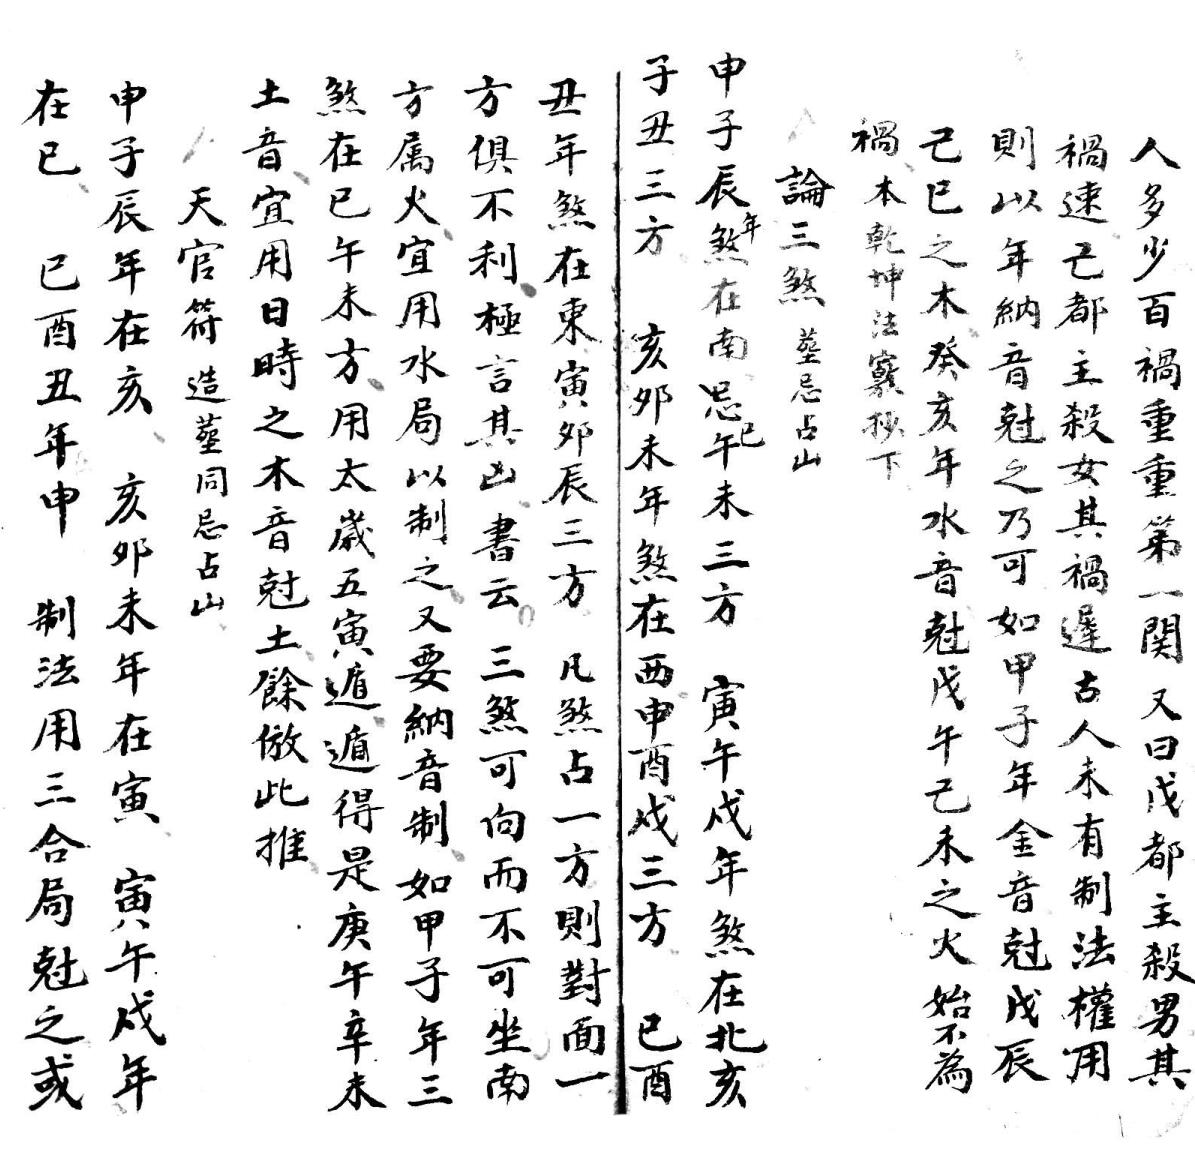 人多少百禍重重第一関 又曰戊都主殺男其
禍速己都主殺女其禍遲古人未有制法權用
則以年納音尅之乃可如甲子年金音尅戊辰
己巳之木癸亥年水音尅戊午己未之火始不為
禍 本乾坤法竅抄下
論三煞 塟忌占山
申子辰年煞在南忌巳午未三方 寅午戌年煞在北亥
子丑三方 亥卯未年煞在西申酉戌三方 巳酉
丑年煞在東寅卯辰三方 凡煞占一方則對面一
方俱不利極言其凶 書云 三煞可向而不可坐南
方属火宜用水局以制之又要納音制如甲子年三
煞在巳午未方用太歲五寅遁遁得是庚午辛未
土音宜用日時之木音尅土餘倣此推
天官符 造塟同忌占山
申子辰年在亥 亥卯未年在寅 寅午戌年
在巳 巳酉丑年申 制法用三合局尅之或